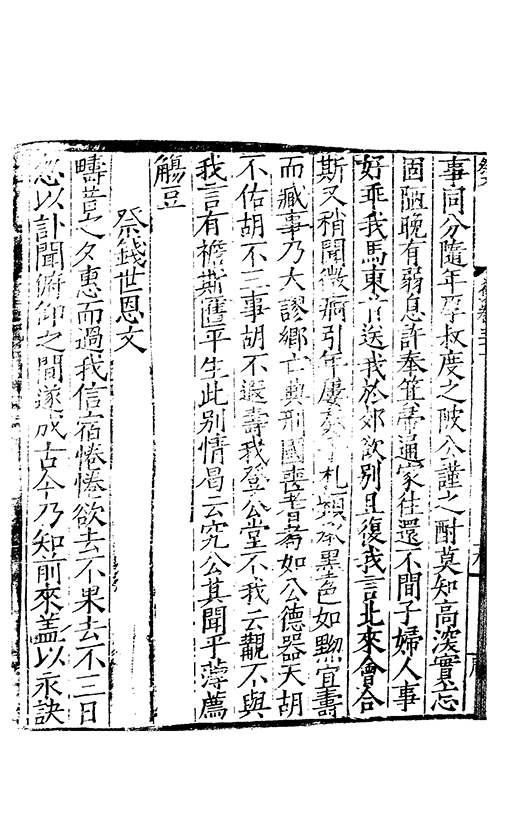 事同分隨年孚叔度之陂公謹之酎莫知高深實忘
固陋晚有弱息許奉箕帚通家往還不間子婦人事
好乖我馬東首送我於郊欲別且復我言北來會合
斯又稍聞微痾引年屢 札 黑色如黝宜壽
而臧事乃大謬鄉亡典刑國喪耆 如公德器天胡
不佑胡不三事胡不遐壽我登公堂不我云覯不與
我言有檐斯匶平生此别情曷云究公其聞乎薄薦
觴豆
祭錢世恩文
疇昔之夕惠而過我信宿惓惓欲去不果去不三日
忽以訃聞俯仰之間遂成古今乃知前來盖以永訣